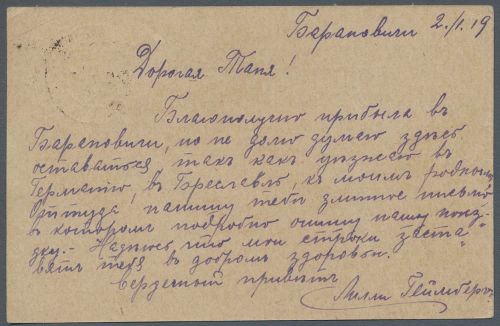 Барановичи 2./I.19
Дорогая Таня!
Благополучно прибыла въ
Барановичи, но не долго думаю здѣсь
оставаться такъ какъ уѣзжаю въ
Германію, въ Бреславль, къ моимъ роднымъ
Оттуда напишу тебѣ длинное письмо
въ которомъ подробно опишу нашу поѣз-
дку. Надѣюсь, что мои строки заста-
вятъ тебя въ добромъ здоровьи.
Сердечный привѣтъ
Лилли Геймбергъ